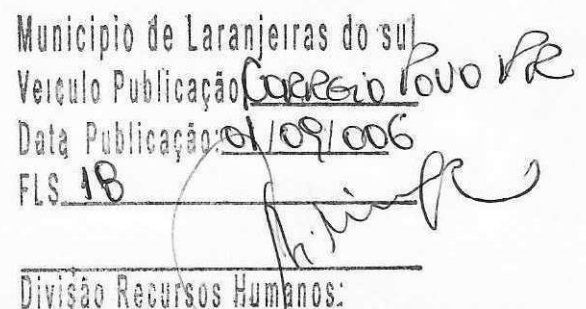 Municipio de Laranjeiras do sul
Veiculo Publicação CORREGIO POVO PR
Data Publicação: 01/09/006
FLS 1B
Divisão Recursos Humanos: